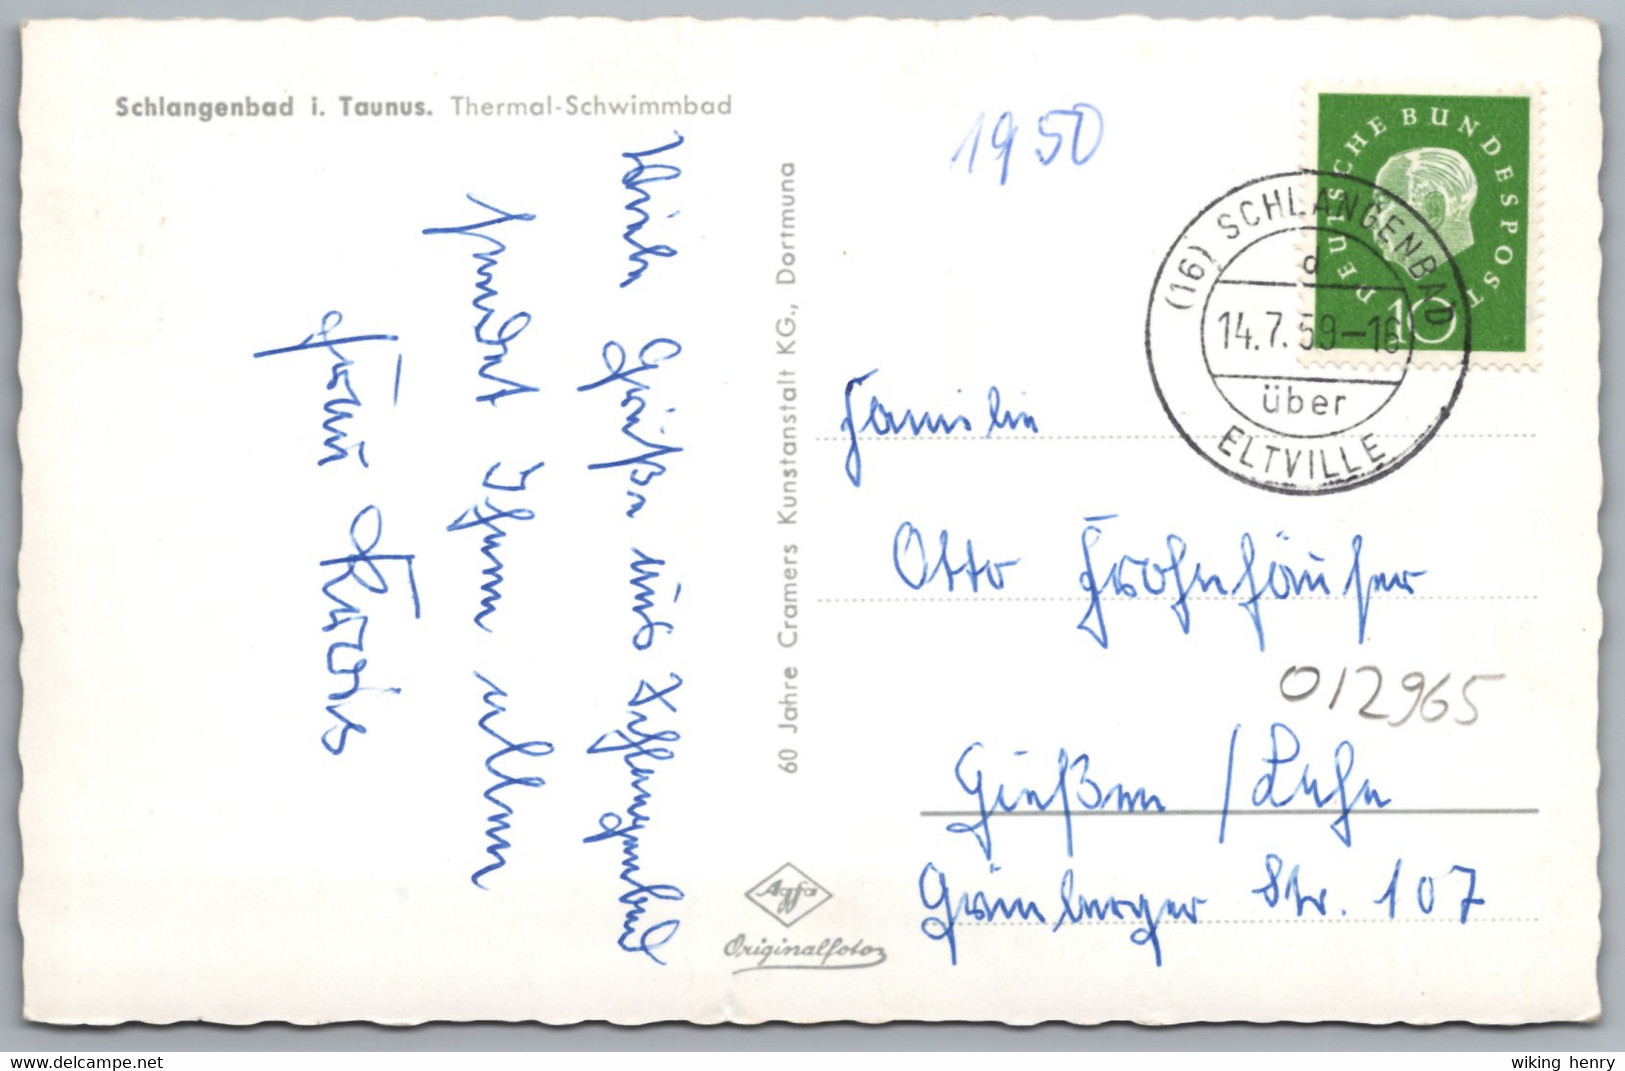 Schlangenbad i. Taunus. Thermal-Schwimmbad
1950
DEUTSCHE BUNDESPOST
10
(16) SCHLANGENBAD
d
14.7.59-16
über
ELTVILLE
60 Jahre Cramers Kunstanstalt KG., Dortmund
Viele Grüße aus Schlangenbad
sendet Ihnen allen
Frau
Familie
Otto Frohnhäuser
012965
Gießen / Lahn
Grünberger Str. 107
Agfa
Originalfoto
delcampe.net
wiking henry